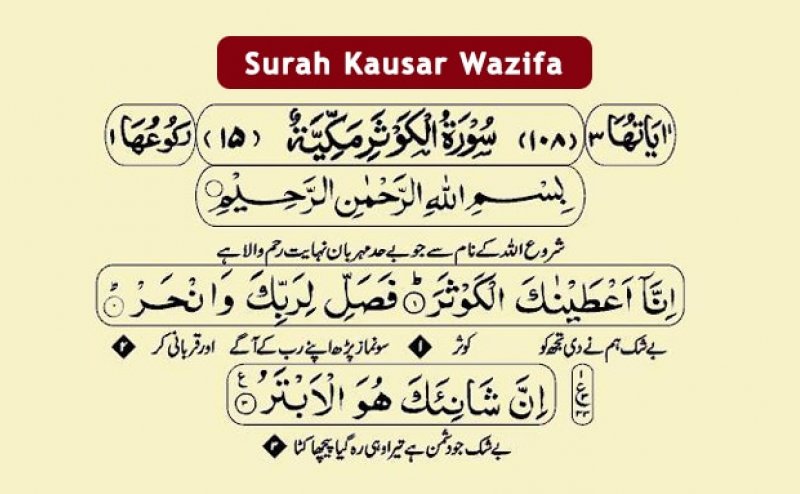 Surah Kausar Wazifa
اٰیَاتُهَا ۳ (۱۰۸) سُوْرَةُ الْكَوْثَرِ مَكِّيَّةٌ (۱۵) رُكُوْعُهَا ۱
بِسْمِ اللّٰهِ الرَّحْمٰنِ الرَّحِيْمِ
شروع اللہ کے نام سے جو بے حد مہربان نہایت رحم والا ہے
اِنَّاۤ اَعْطَيْنٰكَ الْكَوْثَرَ ۱ فَصَلِّ لِرَبِّكَ وَانْحَرْ
بے شک ہم نے دی تجھ کو کوثر ۱ سو نماز پڑھ اپنے رب کے آگے اور قربانی کر ۲
اِنَّ شَانِئَكَ هُوَ الْاَبْتَرُ ۳
بے شک جو دشمن ہے تیرا وہی رہ گیا پیچھا کٹا ۳